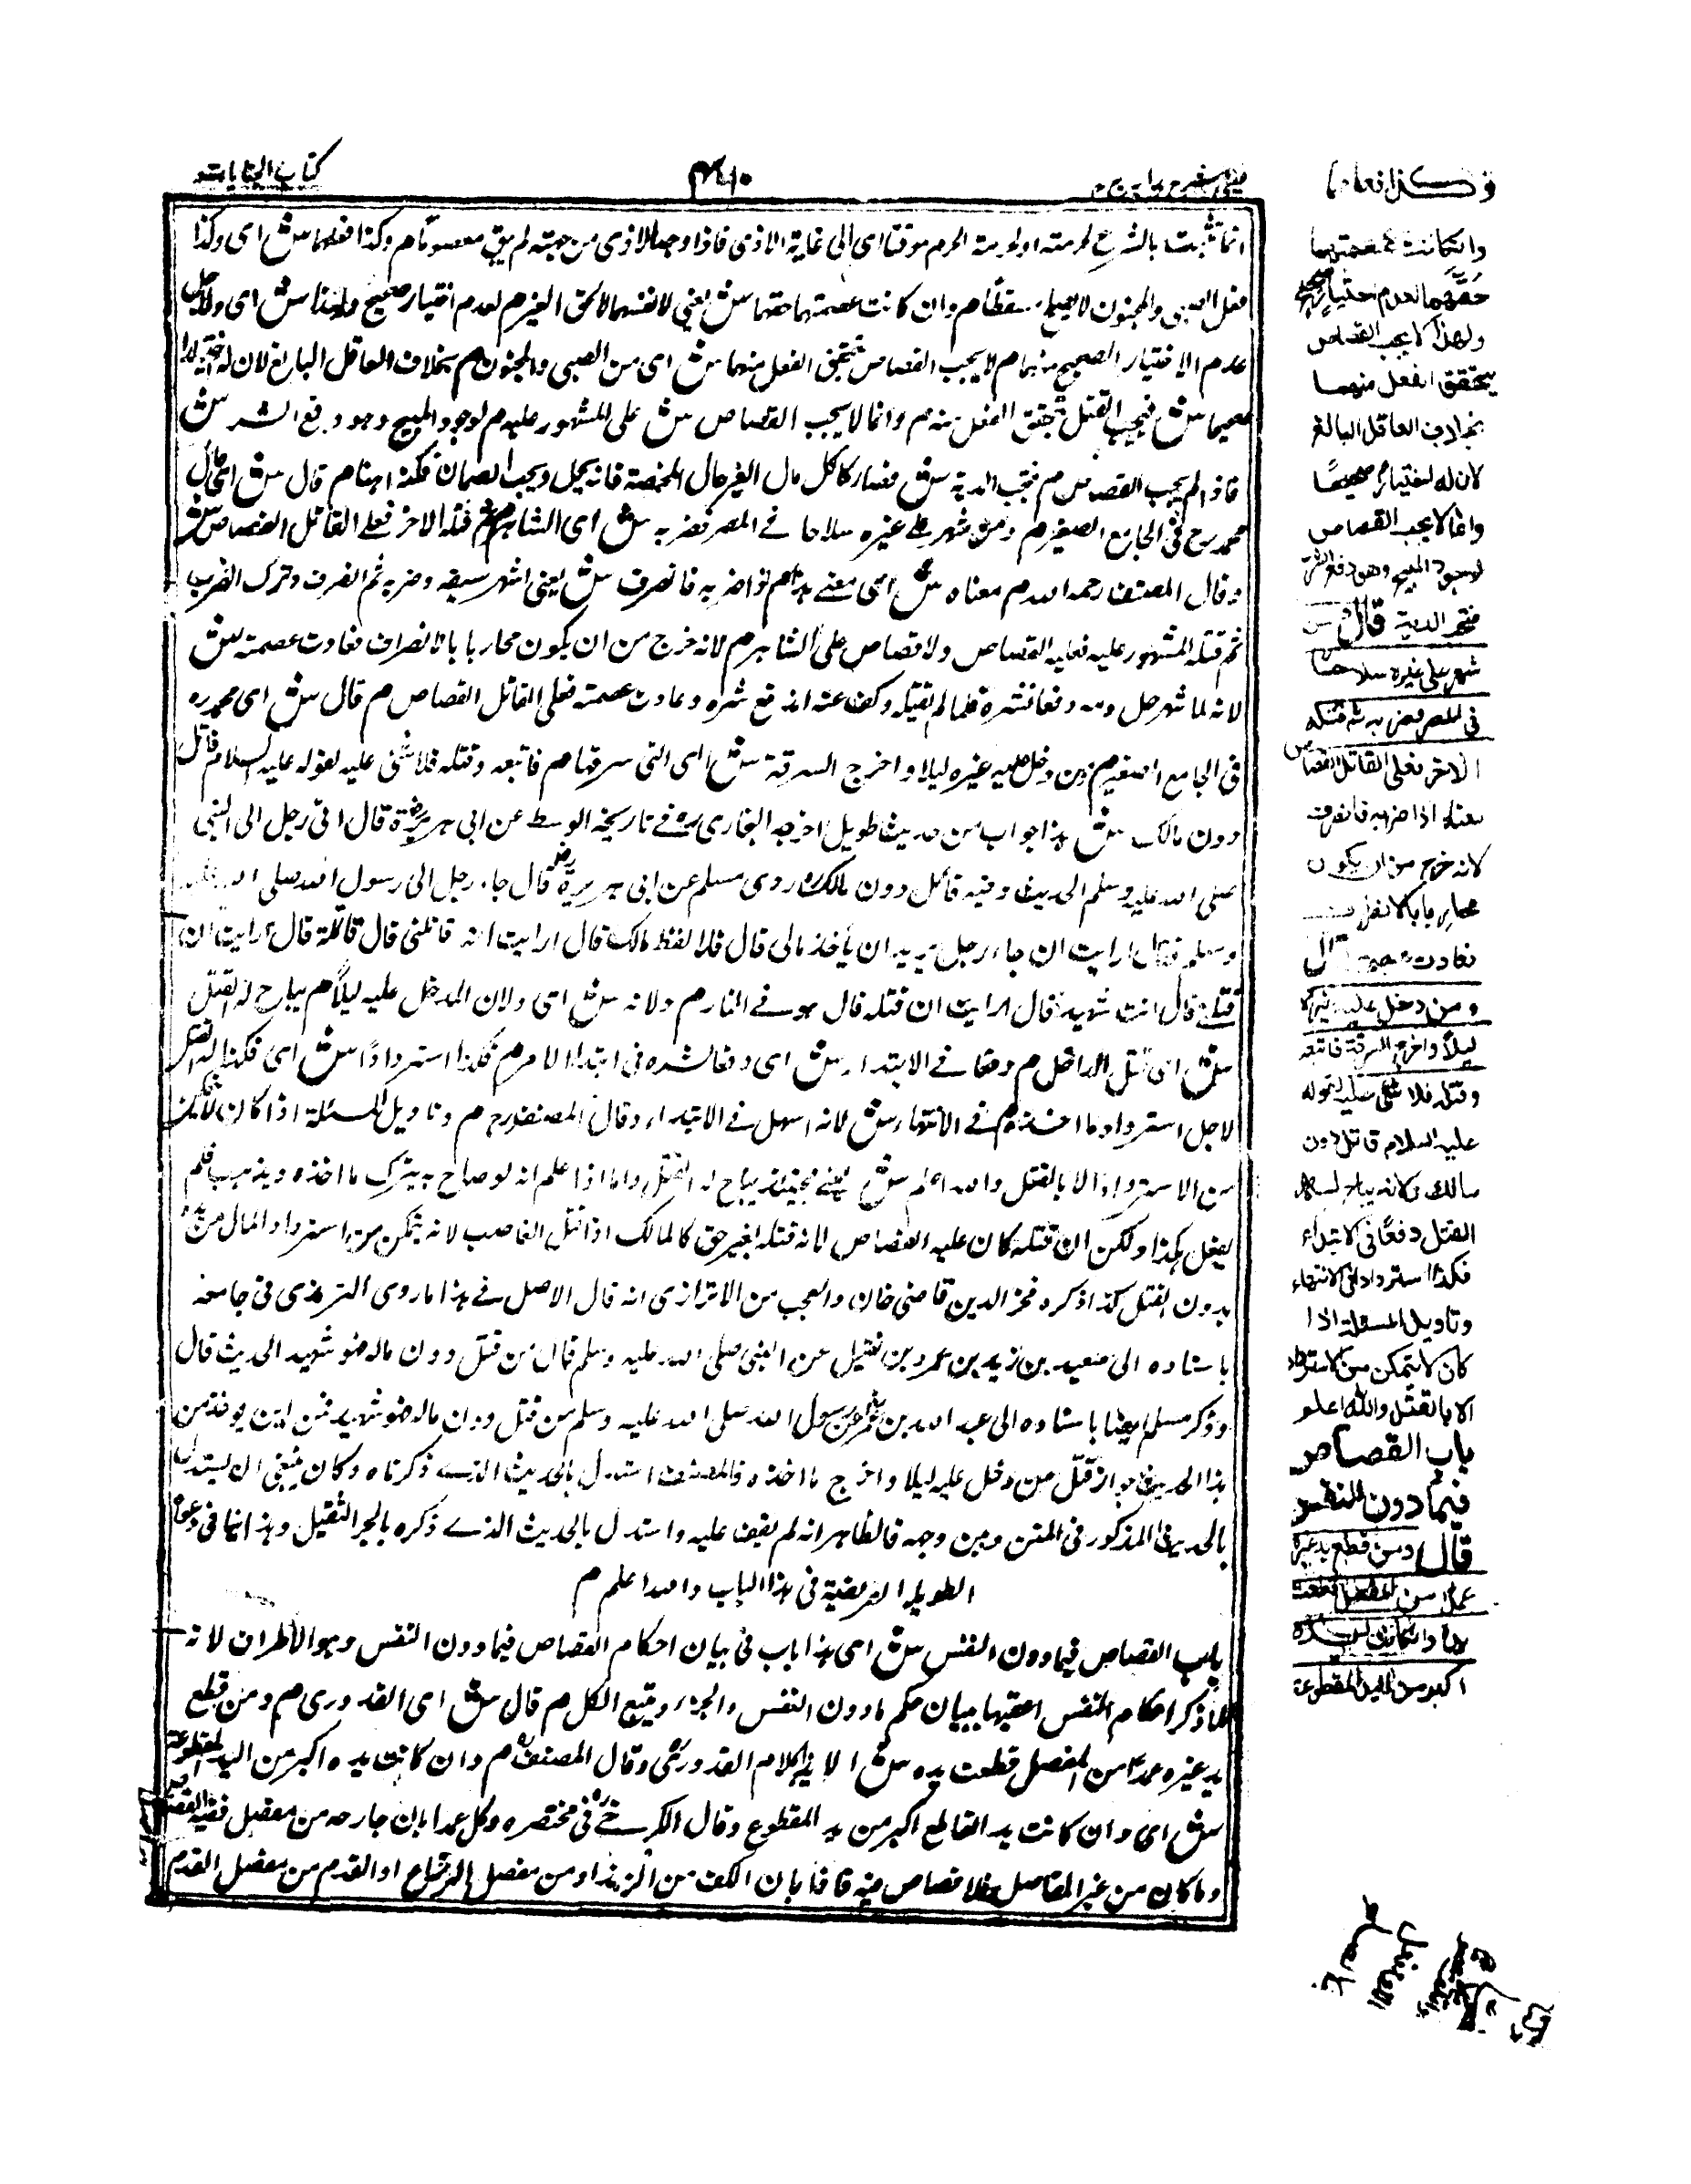 كتاب الجنايات
انما تثبت بالشرع لحرمته او لحرمة الحرم موقتا اى الى غاية الاذى فاذا وجد الاذى من جهته لم يبق معصوما م وكذا فعلهما ش اى وكذا
فعل الصبى والمجنون لا يصلح مسقطا م وان كانت عصمتهما حقهما ش يعنى لانفسهما لا لحق الغير م لعدم اختيار صحيح ولهذا ش اى ولاجل
عدم الاختيار الصحيح منهما م لا يجب القصاص بتحقق الفعل منهما ش اى من الصبى والمجنون م بخلاف العاقل البالغ لان له اختيارا
صحيحا ش فيجب القتل بتحقق الفعل منه م وانما لا يجب القصاص ش على المشهور عليه م لوجود المبيح وهو دفع الشر ش
فاذا لم يجب القصاص م فتجب الدية ش فصار كاكل مال الغير حال المخمصة فانه يحل ويجب الضمان فكذا هنا م قال ش اى قال
محمد رح فى الجامع الصغير م ومن شهر على غيره سلاحا فى المصر فضربه ش اى الشاهر م ثم قتله الاخر فعلى القاتل القصاص ش
وقال المصنف رحمه الله م معناه ش اى معنى هذا م اذا ضربه فانصرف ش يعنى اشهر سيفه وضربه ثم انصرف وترك الضرب
ثم قتله المشهور عليه فعليه القصاص ولا قصاص على الشاهر م لانه خرج من ان يكون محاربا بالانصراف فعادت عصمته ش
لانه لما شهر حل دمه دفعا لشره فلما لم يقتله وكف عنه اندفع شره وعادت عصمته فعلى القاتل القصاص م قال ش اى محمد ره
فى الجامع الصغير م ومن دخل عليه غيره ليلا واخرج السرقة ش اى التى سرقها م فاتبعه وقتله فلا شئ عليه لقوله عليه السلام قاتل
دون مالك ش هذا جواب من حديث طويل اخرجه البخارى ره فى تاريخه الوسط عن ابى هريرة رض قال اتى رجل الى النبى
صلى الله عليه وسلم الحديث وفيه قاتل دون مالك وروى مسلم عن ابى هريرة رض قال جاء رجل الى رسول الله صلى الله عليه
وسلم فقال ارايت ان جاء رجل يريد ان ياخذ مالى قال فلا تعطه مالك قال ارايت ان قاتلنى قال قاتله قال ارايت ان
قتلنى قال انت شهيد قال ارايت ان قتلته قال هو فى النار م ولانه ش اى ولان الداخل عليه ليلا م يباح له القتل
ش اى قتل الداخل م دفعا فى الابتداء ش اى دفعا لشره فى ابتداء الامر م فكذا استردادا ش اى فكذا له القتل
لاجل استرداد ما اخذه م فى الانتهاء ش لانه اسهل فى الابتداء وقال المصنف رح م وتاويل المسئلة اذا كان لا يتمكن
من الاسترداد الا بالقتل والله اعلم ش يعنى فحينئذ يباح له القتل واما اذا علم انه لو صاح به يترك ما اخذه ويذهب فلم
يفعل هكذا ولكن ان قتله كان عليه القصاص لانه قتله بغير حق كالمالك اذا قتل الغاصب لانه يتمكن من استرداد المال منه
بدون القتل كذا ذكره فخر الدين قاضى خان والعجب من الاترازى انه قال الاصل فى هذا ما روى الترمذى فى جامعه
باسناده الى سعيد بن زيد بن عمرو بن نفيل عن النبى صلى الله عليه وسلم قال من قتل دون ماله فهو شهيد الحديث قال
وذكر مسلم ايضا باسناده الى عبد الله بن عمر عن رسول الله صلى الله عليه وسلم من قتل دون ماله فهو شهيد فمن اين يوخذ من
هذا الحديث جواز قتل من دخل عليه ليلا واخرج ما اخذه فالمصنف استدل بالحديث الذى ذكرناه وكان ينبغى ان يستدل
بالحديث المذكور فى المتن ومن وجه فالظاهر انه لم يقف عليه واستدل بالحديث الذى ذكره بالجر الثقيل وهذا ينافى دعواه
الطويلة العريضة فى هذا الباب والله اعلم م
باب القصاص فيما دون النفس ش اى هذا باب فى بيان احكام القصاص فيما دون النفس وهو الاطراف لانه
لما ذكر احكام النفس اعقبها ببيان حكم ما دون النفس والجزء يتبع الكل م قال ش اى القدورى م ومن قطع
يد غيره عمدا من المفصل قطعت يده ش الا هنا كلام القدورى وقال المصنف م وان كانت يده اكبر من اليد المقطوعة
ش اى وان كانت يد القاطع اكبر من يد المقطوع وقال الكرخى ره فى مختصره وكل عمد ابان جارحه من مفصل ففيه القصاص
وما كان من غير المفاصل فلا قصاص فيه فاذا بان الكف من الزند او من مفصل الذراع او القدم من مفصل القدم
وكذا فعلهما
وان كانت عصمتهما
حقهما لعدم اختيار صحيح
ولهذا لا يجب القصاص
بتحقق الفعل منهما
بخلاف العاقل البالغ
لان له اختيارا صحيحا
وانما لا يجب القصاص
لوجود المبيح وهو دفع الشر
فتجب الدية قال ومن
شهر على غيره سلاحا
فى المصر فضربه ثم قتله
الاخر فعلى القاتل القصاص
معناه اذا ضربه فانصرف
لانه خرج من ان يكون
محاربا بالانصراف
فعادت عصمته قال
ومن دخل عليه غيره
ليلا واخرج السرقة فاتبعه
وقتله فلا شئ عليه لقوله
عليه السلام قاتل دون
مالك ولانه يباح له
القتل دفعا فى الابتداء
فكذا استردادا فى الانتهاء
وتاويل المسئلة اذا
كان لا يتمكن من الاسترداد
الا بالقتل والله اعلم
باب القصاص
فيما دون النفس
قال ومن قطع يد غيره
عمدا من المفصل قطعت
يده وان كانت يده
اكبر من اليد المقطوعة